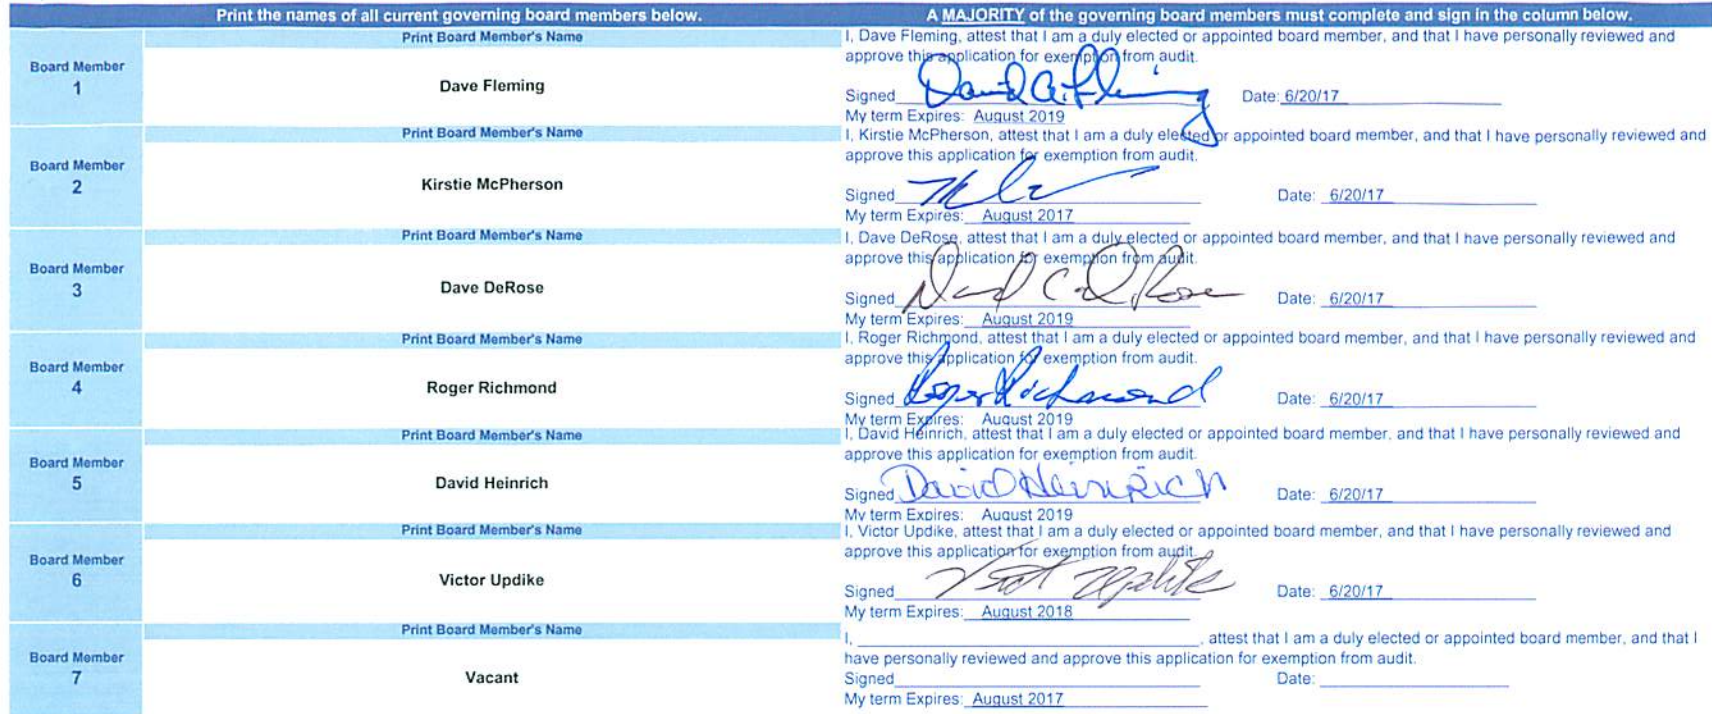 Print the names of all current governing board members below.
A MAJORITY of the governing board members must complete and sign in the column below.
Board Member
1
Print Board Member's Name
Dave Fleming
I, Dave Fleming, attest that I am a duly elected or appointed board member, and that I have personally reviewed and
approve this application for exemption from audit.
Signed David A. Fleming Date: 6/20/17
My term Expires: August 2019
Board Member
2
Print Board Member's Name
Kirstie McPherson
I, Kirstie McPherson, attest that I am a duly elected or appointed board member, and that I have personally reviewed and
approve this application for exemption from audit.
Signed Date: 6/20/17
My term Expires: August 2017
Board Member
3
Print Board Member's Name
Dave DeRose
I, Dave DeRose, attest that I am a duly elected or appointed board member, and that I have personally reviewed and
approve this application for exemption from audit.
Signed David C DeRose Date: 6/20/17
My term Expires: August 2019
Board Member
4
Print Board Member's Name
Roger Richmond
I, Roger Richmond, attest that I am a duly elected or appointed board member, and that I have personally reviewed and
approve this application for exemption from audit.
Signed Roger Richmond Date: 6/20/17
My term Expires: August 2019
Board Member
5
Print Board Member's Name
David Heinrich
I, David Heinrich, attest that I am a duly elected or appointed board member, and that I have personally reviewed and
approve this application for exemption from audit.
Signed David Heinrich Date: 6/20/17
My term Expires: August 2019
Board Member
6
Print Board Member's Name
Victor Updike
I, Victor Updike, attest that I am a duly elected or appointed board member, and that I have personally reviewed and
approve this application for exemption from audit.
Signed Vict Updike Date: 6/20/17
My term Expires: August 2018
Board Member
7
Print Board Member's Name
Vacant
I, , attest that I am a duly elected or appointed board member, and that I
have personally reviewed and approve this application for exemption from audit.
Signed Date:
My term Expires: August 2017